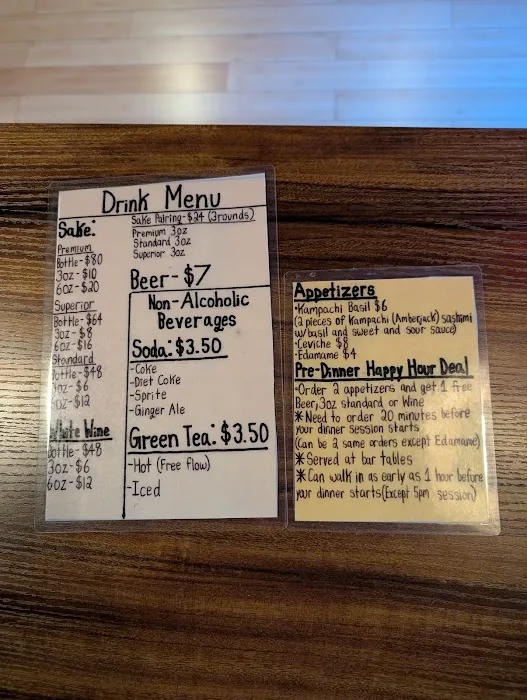 Drink Menu
Sake:
Premium
Bottle-$80
3oz-$10
6oz-$20
Superior
Bottle-$64
3oz-$8
6oz-$16
Standard
Bottle-$48
3oz-$6
6oz-$12
White Wine
Bottle-$48
3oz-$6
6oz-$12
Sake Pairing-$24 (3rounds)
Premium 3oz
Standard 3oz
Superior 3oz
Beer-$7
Non-Alcoholic
Beverages
Soda:$3.50
-Coke
-Diet Coke
-Sprite
-Ginger Ale
Green Tea:$3.50
-Hot (Free flow)
-Iced
Appetizers
-Kampachi Basil $6
(2 pieces of Kampachi (Amberjack) sashimi
w/basil and sweet and sour sauce)
-Ceviche $8
-Edamame $4
Pre-Dinner Happy Hour Deal
-Order 2 appetizers and get 1 free
Beer,3oz standard or Wine
*Need to order 20 minutes before
your dinner session starts
(Can be 2 same orders except Edamame)
*Served at bar tables
*Can walk in as early as 1 hour before
your dinner starts(Except 5pm session)